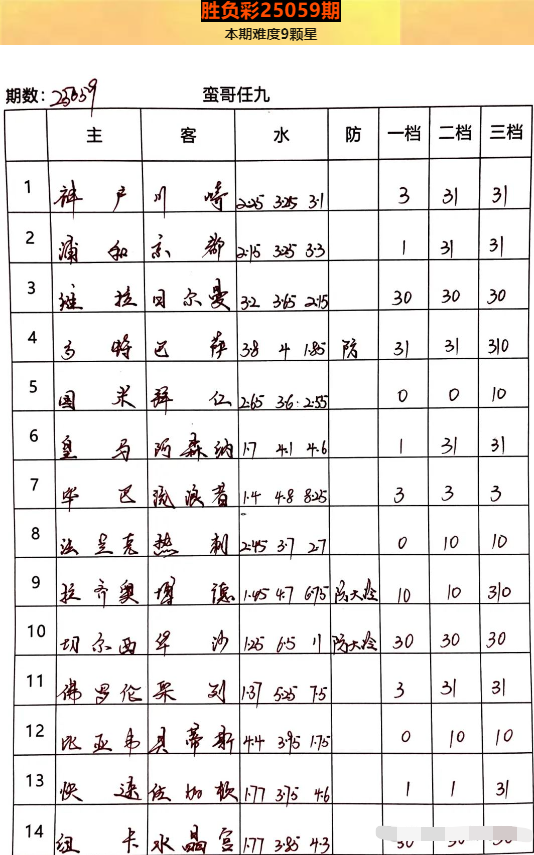 胜负彩25059期
本期难度9颗星
期数: 25059 蛮哥任九
主 客 水 防 一档 二档 三档
1 神户 川崎 2.25 3.25 3.1 3 31 31
2 浦和 京都 2.15 3.25 3.3 1 31 31
3 维拉 日尔曼 3.2 3.65 2.15 30 30 30
4 多特 巴萨 3.8 4 1.85 防 31 31 310
5 国米 拜仁 2.65 3.6 2.55 0 0 10
6 皇马 阿森纳 1.7 4.1 4.6 1 31 31
7 毕巴 流浪者 1.4 4.8 8.25 3 3 3
8 法兰克 热刺 2.45 3.7 2.7 0 10 10
9 拉齐奥 博德 1.45 4.7 6.75 防大冷 10 10 310
10 切尔西 华沙 1.25 6.5 11 防大冷 30 30 30
11 佛罗伦 采列 1.37 5.25 7.5 3 31 31
12 比亚韦 贝蒂斯 4.4 3.95 1.75 0 10 10
13 快速 佐加顿 1.77 3.75 4.6 1 1 31
14 纽卡 水晶宫 1.77 3.85 4.3 30 30 30